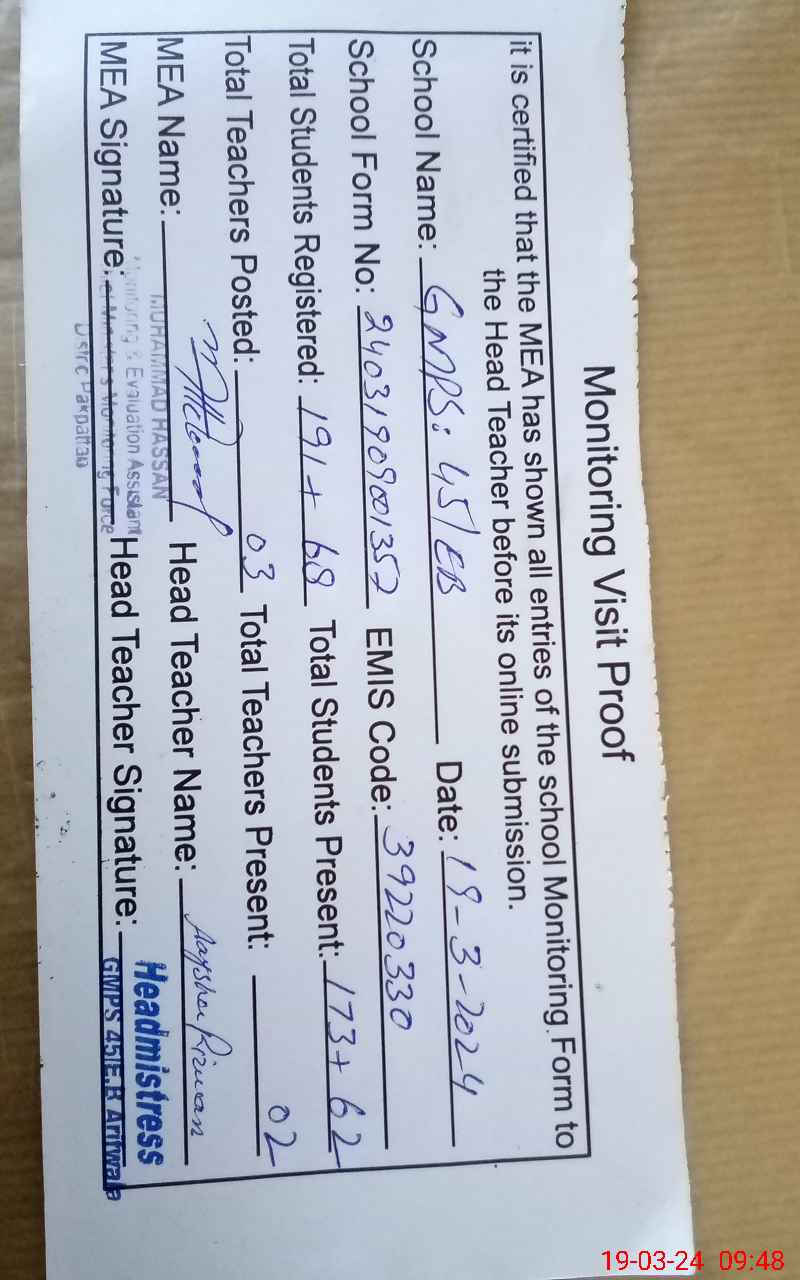 Monitoring Visit Proof
it is certified that the MEA has shown all entries of the school Monitoring Form to
the Head Teacher before its online submission.
School Name: GMPS: 45/EB Date: 19-3-2024
School Form No: EMIS Code: 39220330
Total Students Registered: 191 + 68 Total Students Present: 173 + 62
Total Teachers Posted: 03 Total Teachers Present: 02
MEA Name: Head Teacher Name: Aaysha Rizwan
MUHAMMAD HASSAN
Monitoring & Evaluation Assistant
MEA Signature: Head Teacher Signature: Headmistress
Chief Minister's Monitoring Force
GMPS 45/E.B Arifwala
District Pakpattan
19-03-24 09:48